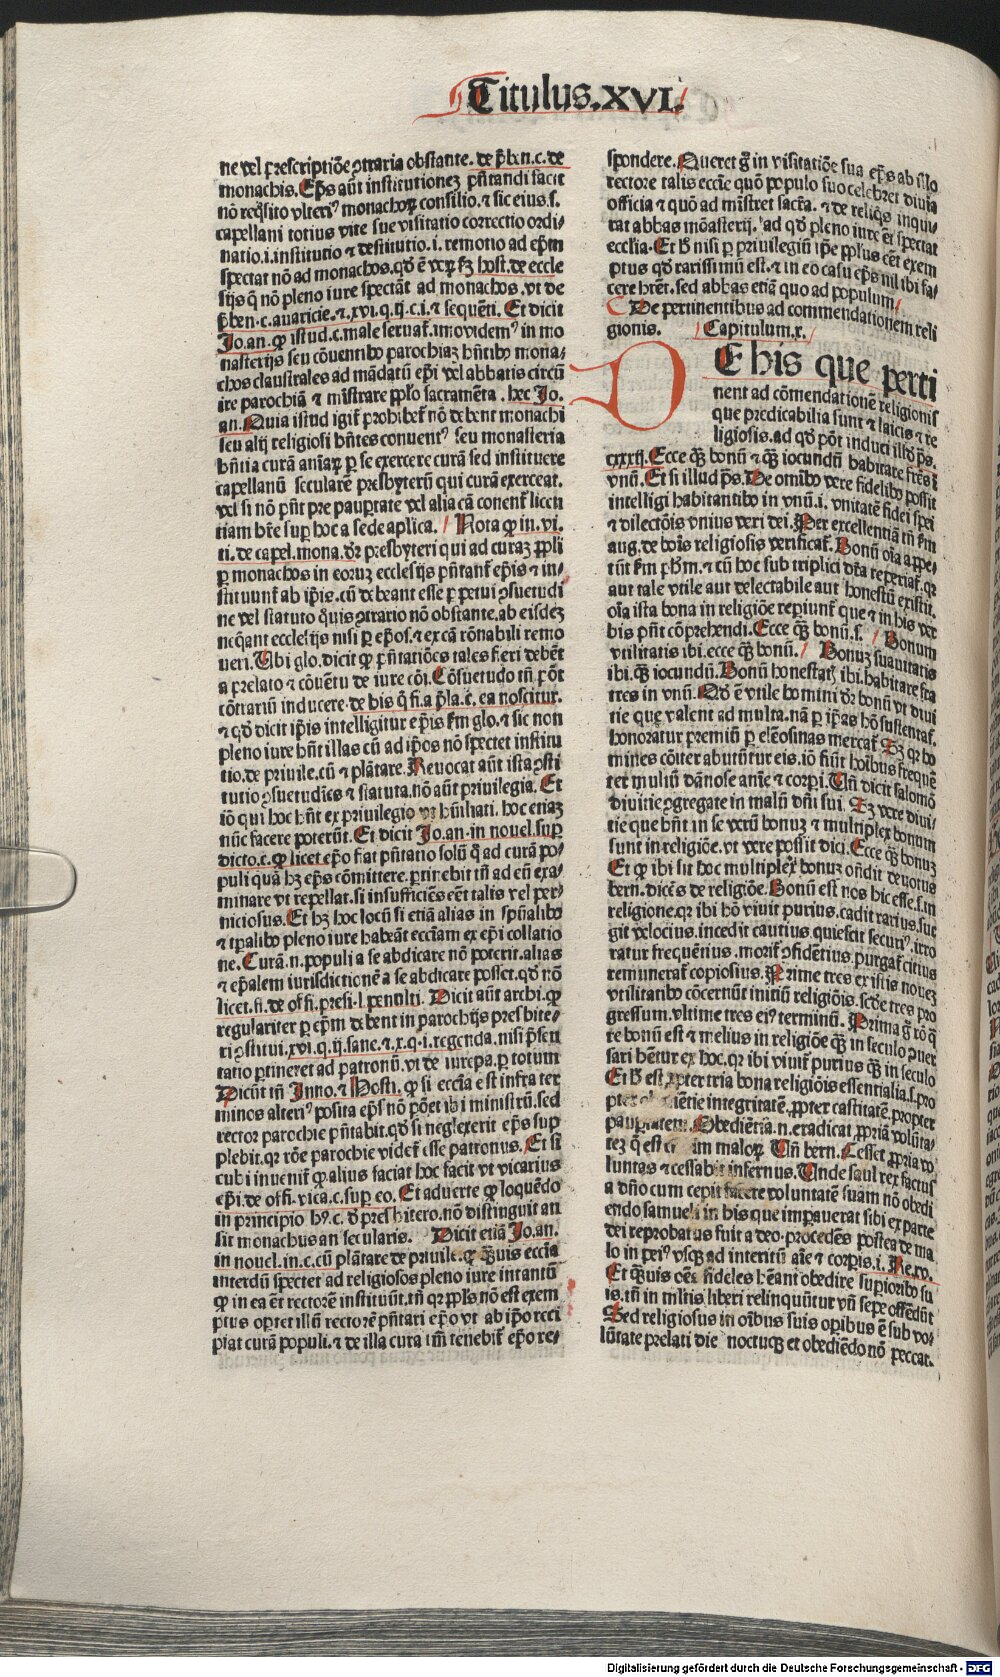 Titulus.XVI.
ne vel prescriptiōe ꝯtraria obstante. de p̄bn.c.de
monachis. Ep̄s aūt institutionez p̄ntandi facit
nō reqͥsito vlteriꝰ monachoꝝ consilio. ⁊ sic eius.s.
capellani totius vite sue visitatio correctio ordi⸗
natio.i.institutio ⁊ destitutio.i.remotio ad ep̄m
spectat nō ad monachos.qd̄ ē veꝝ fꝫ host. de eccle
sijs q̄ nō pleno iure spectāt ad monachos. vt de
p̄ben.c.auaricie.⁊.xvi.q.ij.c.i.⁊ sequēti. Et dicit
Jo.an. ꝙ istud.c.male seruat᷑.imo videmꝰ in mo
nasterijs seu cōuentibꝰ parochiaꝫ hn̄tibꝰ mona⸗
chos claustrales ad mādatū ep̄i vel abbatis circū
ire parochiā ⁊ mīstrare pp̄lo sacramēta. hec Jo.
an. Quia istud igit᷑ prohibet᷑ nō debent monachi
seu alij religiosi hn̄tes conuentꝰ seu monasteria
hn̄tia curā aniaꝝ ꝑ se exercere curā sed instituere
capellanū secularē presbyterū qui curā exerceat.
vel si nō pn̄t pre paupertate vel alia cā conenit᷑ licen
tiam hr̄e suꝑ hoc a sede aplica. Nota ꝙ in.vi.
ti.de capel.mona.dr̄ presbyteri qui ad curaꝫ pp̄li
ꝑ monachos in eoruꝫ ecclesijs pn̄tant᷑ ep̄is ⁊ in⸗
stituunt᷑ ab ip̄is. cū debeant esse ꝑpetui ꝯsuetudi
ne vel statuto qͥuis ꝯtrario nō obstante.ab eisdeꝫ
neq̄ant ecclesijs nisi ꝑ ep̄os.⁊ ex cā rōnabili remo
ueri. Ubi glo.dicit ꝙ pn̄tatiōes tales fieri debēt
a prelato ⁊ cōuētu de iure cōi. Cōsuetudo tn̄ pōt
cōtrariū inducere.de his q̄ fi.a p̄la.c̄. ea noscitur.
⁊ qd̄ dicit ip̄is intelligitur ep̄is fm glo.⁊ sic non
pleno iure hn̄t illas cū ad ip̄os nō spectet institu
tio.de priuile.cū ⁊ plātare. Reuocat aūt ista ꝯsti
tutio ꝯsuetudīes ⁊ statuta.nō aūt priuilegia. Et
iō qui hoc hn̄t ex priuilegio vt hu̅iliati. hoc etiaꝫ
nūc facere poterūt. Et dicit Jo.an.in nouel.suꝑ
dicto.c. ꝙ licet ep̄o fiat pn̄tatio solū q̄ ad curā po⸗
puli quā hꝫ ep̄s cōmittere. ꝑtinebit tn̄ ad eū exa⸗
minare vt repellat.si insufficiēs eēt talis vel per⸗
niciosus. Et hꝫ hoc locū si etiā alias in spūalibꝰ
⁊ tꝑalibꝰ pleno iure habeāt ecciam ex ep̄i collatio
ne. Curā.n.populi a se abdicare nō poterit.alias
⁊ ep̄alem iurisdictionē a se abdicare posset.qd̄ nō
licet.ff.de offi.presi.l.penulti. Dicit aūt archi. ꝙ
regulariter ꝑ ep̄m debent in parochijs presbite⸗
ri ꝯstitui.xvi.q.ij.sane.⁊.x.q.i.regenda. nisi p̄sen
tatio ꝑtineret ad patronū.vt de iurepa.ꝑ totum
Dicūt tn̄ Inno.⁊ Hosti. ꝙ si eccia est infra ter
minos alteriꝰ posita ep̄s nō pōet ibi ministrū.sed
rector parochie pn̄tabit.qd̄ si neglexerit ep̄s sup
plebit.qr rōe parochie videt᷑ esse patronus. Et si
cubi inuenit᷑ ꝙ alius faciat hoc facit vt vicarius
ep̄i.de offi.vica.c.suꝑ eo. Et aduerte ꝙ loquēdo
in principio hꝰ.c. d̄ presbitero.nō distinguit an
sit monachus an secularis. Dicit etiā Jo.an.
in nouel.in.c.cū plātare de priuile. ꝙ qͣuis eccia
interdū spectet ad religiosos pleno iure intantū
ꝙ in ea ēt rectorē instituūt.tn̄ qr pp̄ls nō est exem
ptus oꝑtet illū rectorē pn̄tari ep̄o vt ab ip̄o reci
piat curā populi.⁊ de illa cura tm̄ tenebit᷑ ep̄o re⸗
spondere. Queret g̊ in visitatiōe sua ep̄s ab illo
rectore talis eccīe quō populo suo celebret diuīa
officia ⁊ quō ad mīstret sacrā. ⁊ de reliqͥs inqui⸗
rat abbas mōasterij. ad qd̄ pleno iure ei spectat
ecclia. Et h̄ nisi ꝑ priuilegiū ip̄e pp̄lus eēt exem
ptus qd̄ rarissimū est.⁊ in eo casu ep̄s nil ibi fa⸗
cere hr̄et.sed abbas etiā quo ad populum
De pertinentibus ad commendationem reli
gionis. Capitulum.x.
DE his que perti
nent ad cōmendationē religionis
que predicabilia sunt ⁊ laicis ⁊ re
ligiosis.ad qd̄ pōt induci illd̄ ps.
cxxxij. Ecce qͣꝫ bonū ⁊ qͣꝫ iocundū habitare fr̄es ī
vnū. Et si illud ps. De omībꝰ vere fidelibꝰ possit
intelligi habitantibꝰ in vnū.i. vnitatē fidei spei
⁊ dilectōis vnius veri dei. Per excellentiā tn̄ fm
aug.de bois religiosis verificat᷑. Bonū oīa appe⸗
tūt fm ph̄m.⁊ cū hoc sub triplici dr̄ia reperiat᷑.qr
aut tale vtile aut delectabile aut honestū existit.
oīa ista bona in religiōe reperiunt᷑ que ⁊ in his ver
bis pn̄t cōprehendi. Ecce qͣꝫ bonū.s. Bonum
vtilitatis ibi.ecce qͣꝫ bonū. Bonuꝫ suauitatis
ibi.qͣꝫ iocundū. Bonū honestatꝭ ibi.habitare fra
tres in vnū. Qd̄ ē vtile homini dr̄ bonū vt diui
tie que valent ad multa.nā ꝑ ip̄as hō sustentat᷑.
honoratur premiū ꝑ elēosinas mercat᷑. Sꝫ qr ho
mines cōiter abutūtur eis.iō fiūt hoībus freque
ter multū dānose anīe ⁊ corpi. Un̄ dicit salomō
diuitie ꝯgregate in malū dn̄i sui. Sꝫ vere diui⸗
tie que hn̄t in se verū bonuꝫ ⁊ multiplex bonum
sunt in religiōe.vt vere possit dici. Ecce qͣꝫ bonuꝫ
Et ꝙ ibi sit hoc multiplex bonuꝫ on̄dit deuotus
bern.dicēs de religiōe. Bonū est nos hic esse.s.in
religione.qr ibi hō viuit purius.cadit rarius.sur
git velocius.incedit cautius.quiescit securiꝰ.irro
ratur frequentius.morit᷑ ꝯfidētius.purgat᷑ citius
remunerat᷑ copiosius. Prime tres ex istis noueꝫ
vtilitatibꝰ cōcernūt initiū religiōis.scd̄e tres pro
gressum.vltime tres eiꝰ terminū. Prima g̊ rō q̄
re bonū est ⁊ melius in religiōe qͣꝫ in seculo ꝯuer
sari hētur ex hoc.qr ibi viuit᷑ purius qͣꝫ in seculo
Et h̄ est ꝓpter tria bona religiōis essentialia.s.pro
pter obediētie integritatē.ꝓpter castitatē.propter
paupertatem. Obediētia.n.eradicat ꝓpriā volūta⸗
teꝫ q̄ est im maloꝝ Un̄ bern. Cesset ꝓpria vo
luntas ⁊ cessabit infernus. Unde saul rex factus
a dn̄o cum cepit facere voluntatē suam nō obedi
endo samueli in his que imperauerat sibi ex parte
dei reprobatus fuit a deo.procedēs postea de ma
lo in peiꝰ vsqꝫ ad interitū aīe ⁊ corpis.i. Re.xv.
Et qͣuis oēs fideles hēant obedire suꝑioribꝰ su
is.tn̄ in mltis liberi relinquūtur vn̄ sepe offēdūt
Sed religiosus in oībus suis oꝑibus ē sub vo⸗
lūtate prelati die noctuqꝫ et obediēdo nō peccat.
Digitalisierung gefördert durch die Deutsche Forschungsgemeinschaft - DFG